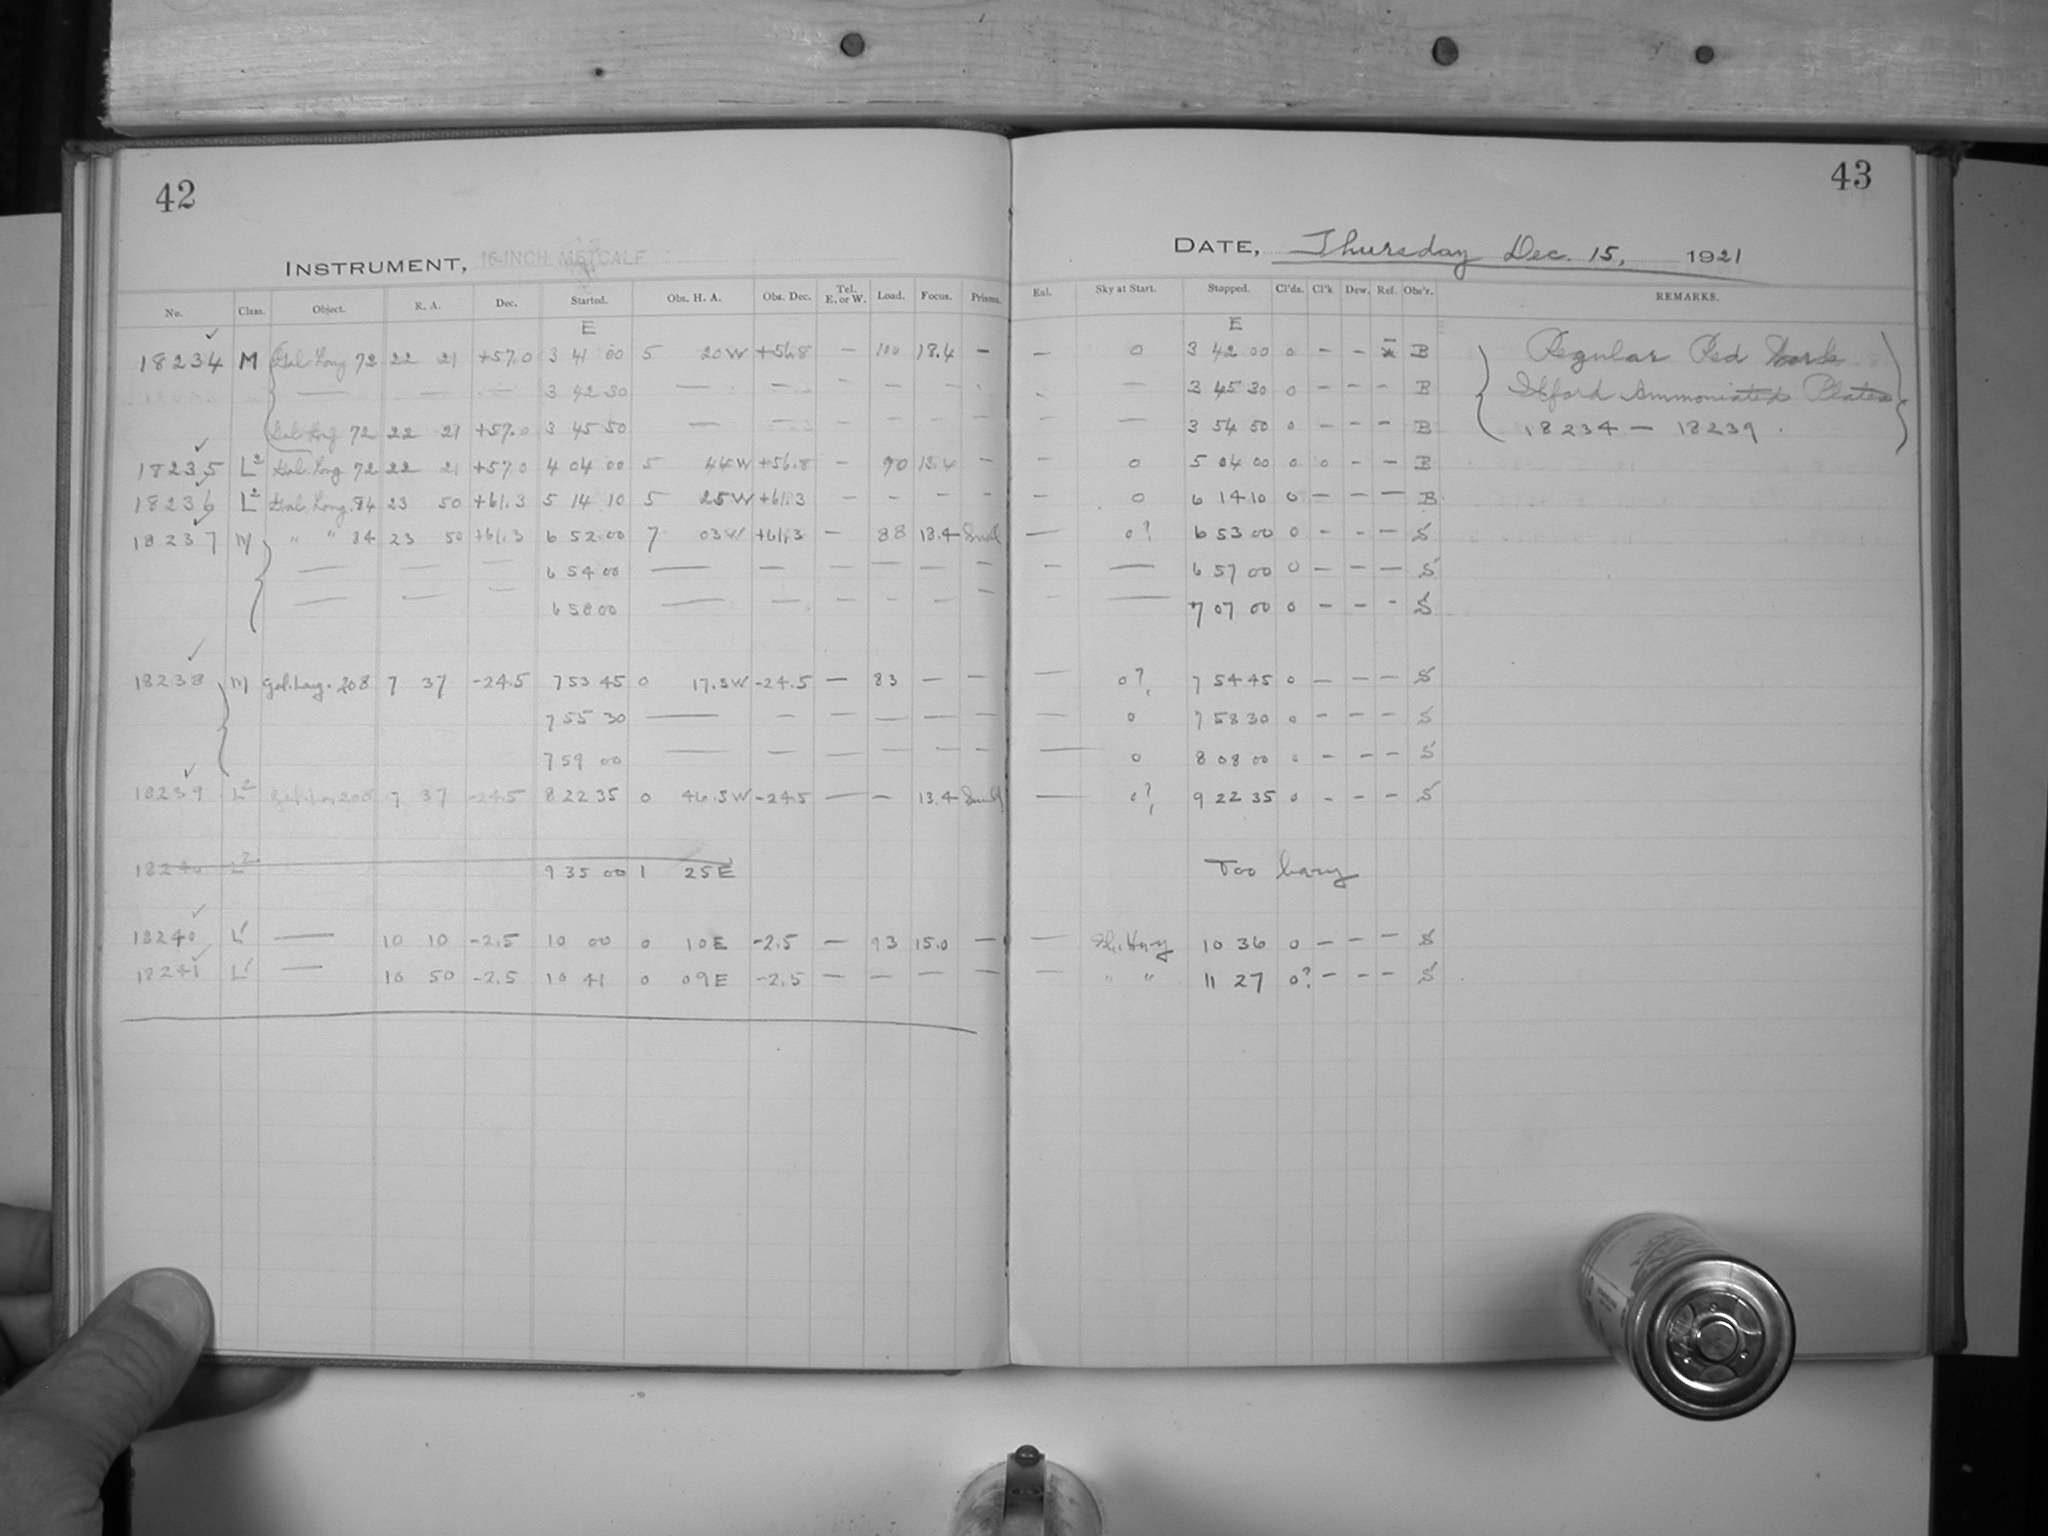 42
43
INSTRUMENT, 16-INCH METCALF
DATE, Thursday Dec. 15, 1921
No. Class. Object. R. A. Dec. Started. Obs. H. A. Obs. Dec. Tel. E. or W. Load. Focus. Prisms. Enl. Sky at Start. Stopped. Cl'ds. Cl'k Dew. Ref. Obs'r. REMARKS.
E E
18234 M Gal. Long 72 22 21 +57.0 3 41 00 5 20 W +56.8 — 100 18.4 — — 0 3 42 00 0 — — B Regular Red Work
— — — 3 42 30 — — — — — — — 3 45 30 0 — — — B Ilford Ammoniated Plates
Gal. Long 72 22 21 +57.0 3 45 50 — — — — — — — 3 54 50 0 — — — B 18234 — 18239.
18235 L2 Gal. Long 72 22 21 +57.0 4 04 00 5 44 W +56.8 — 90 18.4 — — 0 5 04 00 0 0 — — B
18236 L2 Gal. Long. 84 23 50 +61.3 5 14 10 5 25 W +61.3 — — — — — 0 6 14 10 0 — — — B
18237 M " " 84 23 50 +61.3 6 52 00 7 03 W +61.3 — 88 18.4 — 0? 6 53 00 0 — — — S
— — — 6 54 00 — — — — — — — — 6 57 00 0 — — — S
— — — 6 58 00 — — — — — — — — 7 07 00 0 — — — S
18238 M Gal. Long. 208 7 37 -24.5 7 53 45 0 17.5 W -24.5 — 83 — — — 0? 7 54 45 0 — — — S
7 55 30 — — — — — — — 0 7 58 30 0 — — — S
7 59 00 — — — — — — — 0 8 08 00 0 — — — S
18239 L2 Gal. Lon 208 7 37 -24.5 8 22 35 0 46.5 W -24.5 — — 18.4 — 0? 9 22 35 0 — — — S
18240 L2 9 35 00 1 25 E Too hazy
18240 L' — 10 10 -2.5 10 00 0 10 E -2.5 — 93 15.0 — — Sl. Hazy 10 36 0 — — — S
18241 L' — 10 50 -2.5 10 41 0 09 E -2.5 — — — — — " " 11 27 0? — — — S